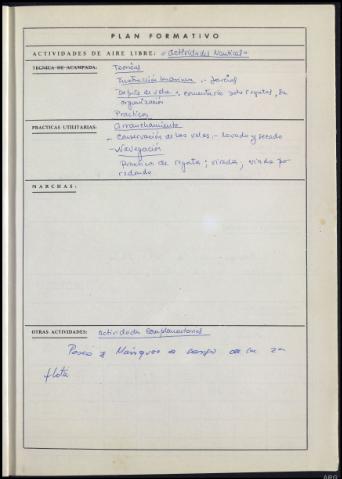 PLAN FORMATIVO
ACTIVIDADES DE AIRE LIBRE: «Actividades Nauticas»
TECNICA DE ACAMPADA: Teoricas
Instrucción marinera :- faenas
Deporte de vela, comentario sobre regatas, su
organización
Practicas
PRACTICAS UTILITARIAS: Arranchamiento
- Conservación de las velas :- lavado y secado
- Navegación
Practica de regata; virada, virada por
redondo
MARCHAS:
OTRAS ACTIVIDADES: Actividades Complementarias
Paseo a
de la
flota